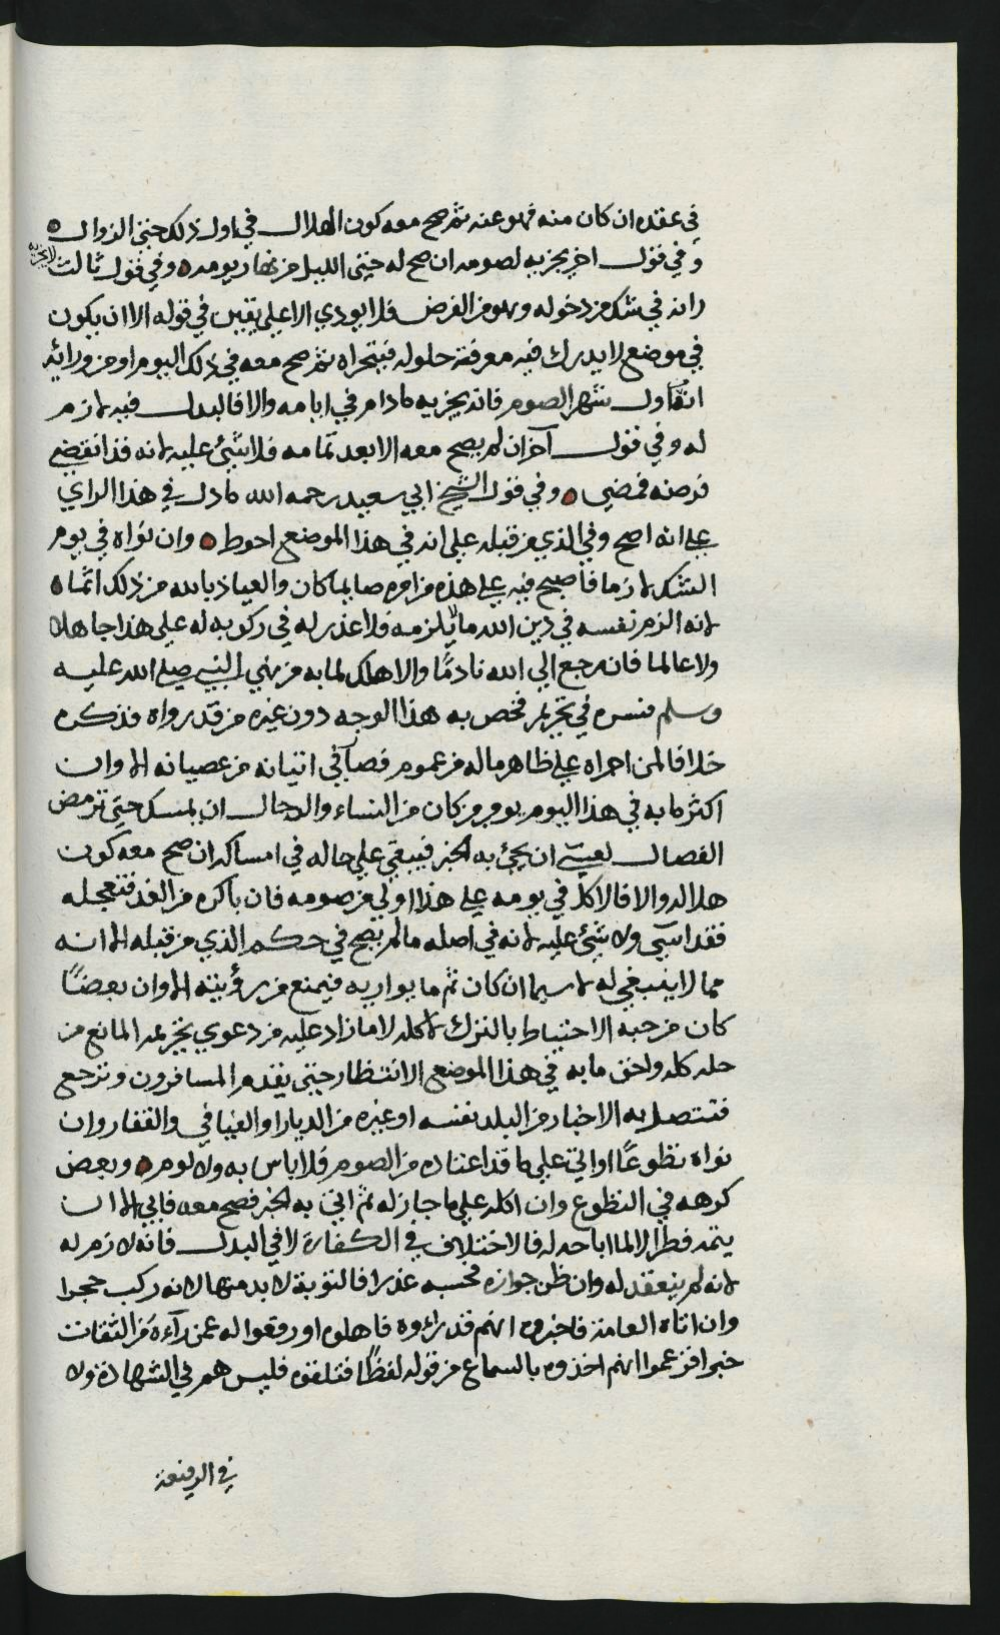 في عقده ان كان منه فهو عنه ثم صح معه كون الهلال في اول ذلك حتى الزوال
وفي قول اخر يجزيه لصومه ان صح له حتى الليل من نهار يومه وفي قول ثالث لا يجزيه
لانه في شك من دخوله وهو من الفرض فلا يودي الا على يقين في قوله الا ان يكون
في موضع لا يدرك فيه معرفة حلوله فيتحراه ثم صح معه في ذلك اليوم او من ورائه
انه اول شهر الصوم فانه يجزيه ما دام في ايامه والا فالبدل فيه لازم
له وفي قول آخر ان لم يصح معه الا بعد تمامه فلا شيء عليه لانه قد انقضى
فرضه فمضى وفي قول الشيخ ابي سعيد رحمه الله ما دل في هذا الراي
على انه اصح وفي الذي من قبله على انه في هذا الموضع احوط وان نواه في يوم
الشك لازما فاصبح فيه على هذه من امره صايما كان والعياذ بالله من ذلك آثما
لانه الزم نفسه في دين الله ما لا يلزمه فلا عذر له في ركوبه له على هذا جاهلا
ولا عالما فان رجع الى الله نادمًا والا هلك لما به من نهي النبي صلى الله عليه
وسلم فسره في تحريم فخص به هذا الوجه دون غيره من قد رواه فذكره
خلافا لمن اجراه على ظاهر ما له من عموم قصاً في اتيانه من عصيانه الا وان
اكثر ما به في هذا اليوم يومر من كان من النساء والرجال ان يمسك حتى ترمض
الفصال لعسى ان يجئ به الخبر فيبقى على حاله في امساكه ان صح معه كون
هلاله والا فالاكل في يومه على هذا اولى من صومه فان باكره من الغد فتعجله
فقد اسى ولا شيء عليه لانه في اصله ما لم يصح في حكم الذي من قبله الا انه
مما لا ينبغي له لا سيما ان كان ثم ما يواريه فيمنع من رؤيته الا وان بعضًا
كان من حبه الاحتياط بالترك لاكله لا ما زاد عليه من دعوى تحريمه المانع من
حله كله ولحق ما به في هذا الموضع الانتظار حتى يقدم المسافرون وترجع
فتتصل به الاخبار من البلد نفسه او غيره من الديار او الفيافي والقفار وان
نواه تطوعًا او اتى على ما قد اعتاده من الصوم فلا باس به ولا لوم وبعض
كرهه في التطوع وان اكله على ما جاز له ثم اتى به الخبر فصح معه فابى الا ان
يتمه فطرا لا لما اباحه له فالاختلاف في الكفارة لا في البدل فانه لازم له
لانه لم ينعقد له وان ظن جوازه فحسبه عذرا فالتوبة لا بد منها لانه ركب حجرا
وان اتاه العامة فاخبروه انهم قد راءوه فاهلوه او رفعوا له عمن رآءه من الثقات
خبرا فزعموا انهم اخذوه بالسماع من قوله لفظًا فتلقوه فليس هم في الشهادة ولا
في الرفيعة